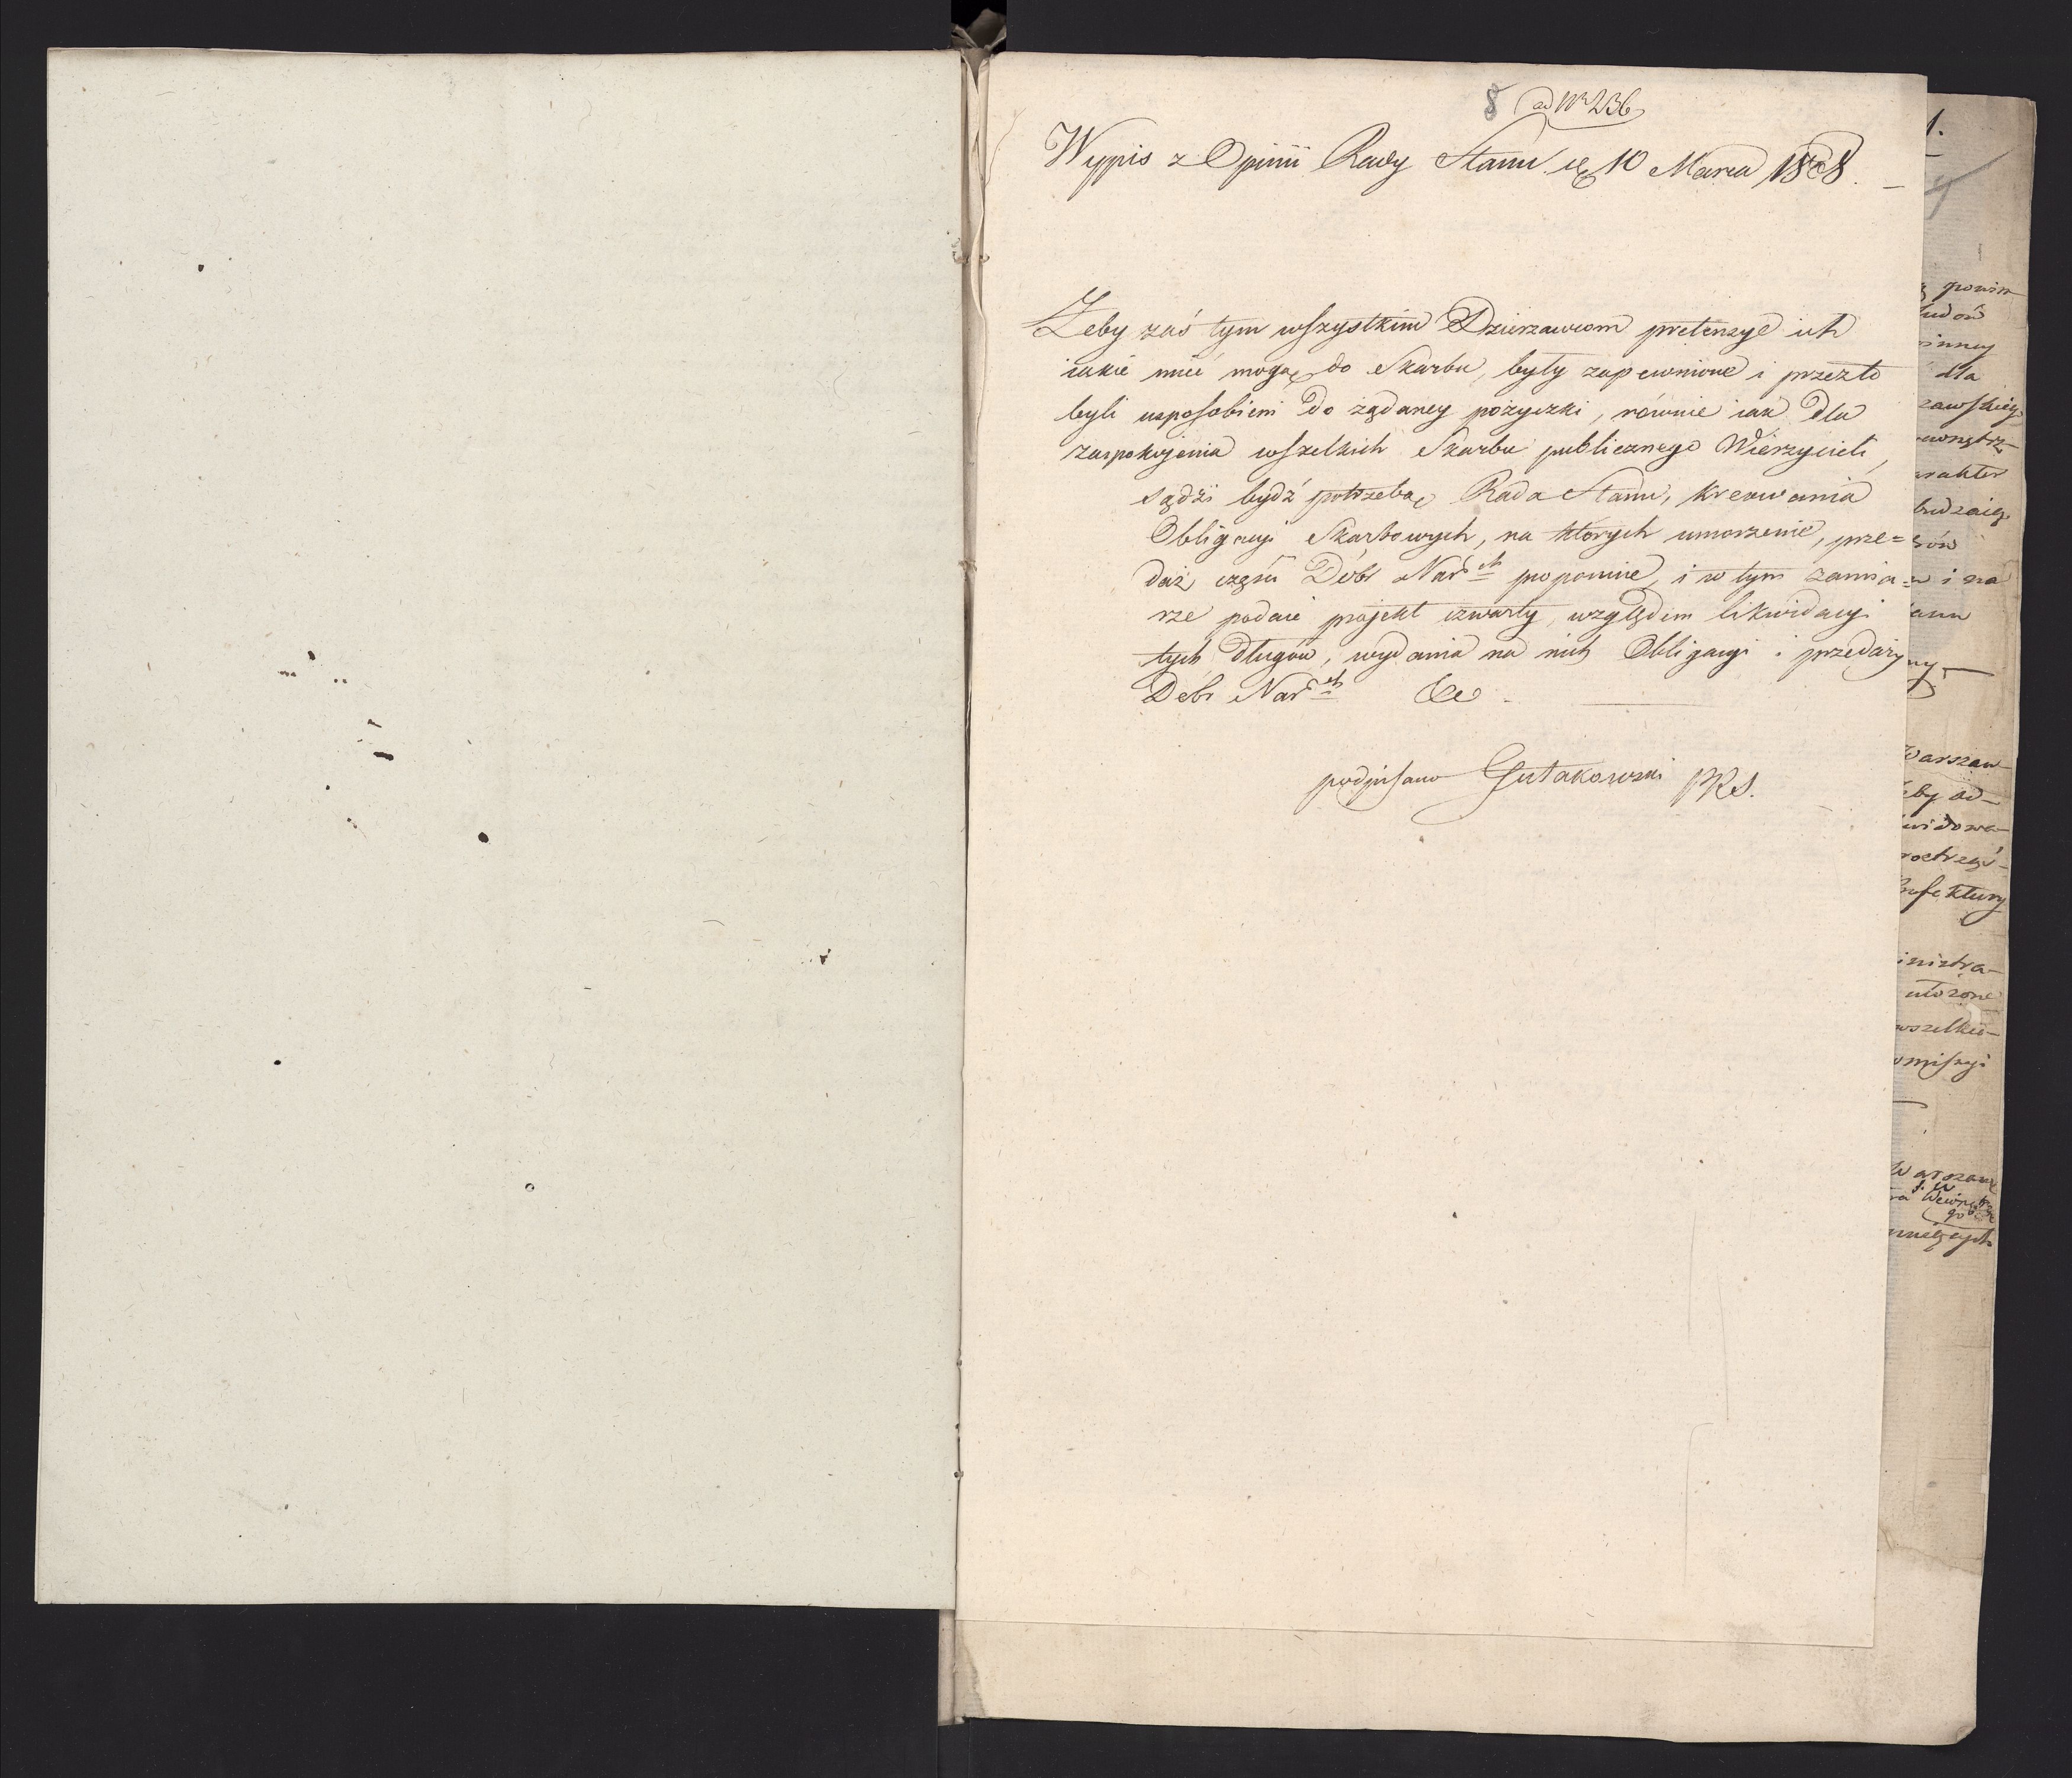 8 ad Nr 236
Wypis z Opinii Rady Stanu 10 Marca 1808. —
Żeby zaś tym wszystkim Dzierzawcom pretensye ich
iakie mieć mogą do Skarbu, były zapewnione i przezto
byli usposobieni do żądaney pożyczki, równie iak dla
zaspokojenia wszelkich Skarbu publicznego Wierzycieli,
sądzi bydź potrzebą Rada Stanu, kreowania
Obligacyi Skarbowych, na których umorzenie, prze=
daż części Dóbr Nar^ch proponuie, i w tym zamia=
rze podaie projekt czwarty, względem likwidacyi
tych długów, wydania na nich Obligacyi i przedaży
Dóbr Nar^ch &c
podpisano Gutakowski PRS.
1.
powin
ludów
inney
dla
zawskieg
ewnętrz
arakter
budzaią
rów
i na
anu
ny —
Warszaw
eby od=
widowa=
roztrząś=
refektury
inistra=
ułożone
wszelkie=
omissyi
Warszaw